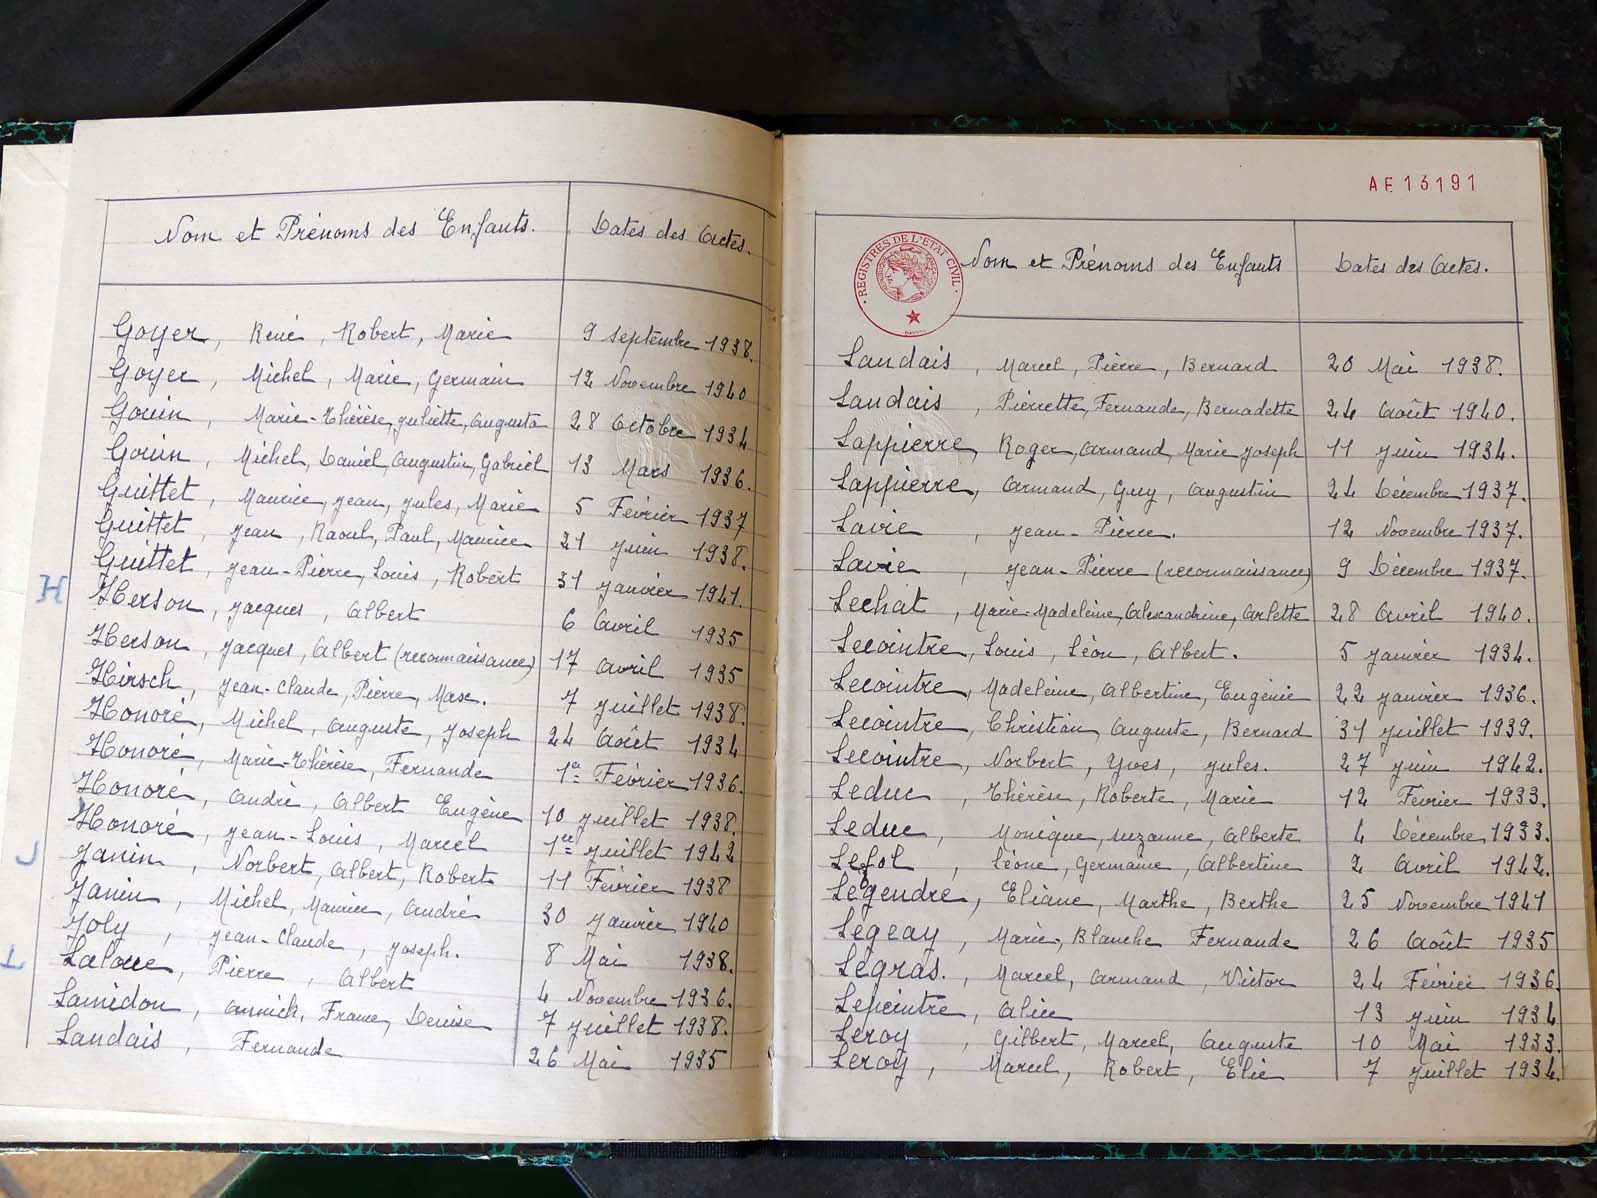 Nom et Prénoms des Enfants. Dates des Actes.
Goyer, René, Robert, Marie 9 septembre 1938.
Goyer, Michel, Marie, Germain 12 Novembre 1940
Gouin, Marie-Thérèse, Juliette, Augusta 28 Octobre 1934
Gouin, Michel, Daniel, Augustin, Gabriel 13 Mars 1936.
Guittet, Maurice, Jean, Jules, Marie 5 Février 1937
Guittet, Jean, Raoul, Paul, Maurice 21 Juin 1938.
Guittet, Jean-Pierre, Louis, Robert 31 Janvier 1941.
H
Herson, Jacques, Albert 6 Avril 1935
Herson, Jacques, Albert (reconnaissance) 17 Avril 1935
Hirsch, Jean-Claude, Pierre, Max. 7 Juillet 1938.
Honoré, Michel, Auguste, Joseph 24 Août 1934
Honoré, Marie-Thérèse, Fernande 1er Février 1936.
Honoré, André, Albert Eugène 10 Juillet 1938.
Honoré, Jean-Louis, Marcel 1er Juillet 1942
J
Janin, Norbert, Albert, Robert 11 Février 1938
Janin, Michel, Maurice, André 30 Janvier 1940
Joly, Jean-Claude, Joseph. 8 Mai 1938.
L
Laloue, Pierre, Albert 4 Novembre 1936.
Lamidon, Annick, France, Denise 7 Juillet 1938.
Landais, Fernande 26 Mai 1935
AE13191
REGISTRES DE L'ETAT CIVIL
Nom et Prénoms des Enfants Dates des Actes.
Landais, Marcel, Pierre, Bernard 20 Mai 1938.
Landais, Pierrette, Fernande, Bernadette 24 Août 1940.
Lappierre, Roger, Armand, Marie Joseph 11 Juin 1934.
Lappierre, Armand, Guy, Augustin 24 Décembre 1937.
Lavie, Jean-Pierre. 12 Novembre 1937.
Lavie, Jean-Pierre (reconnaissance) 9 Décembre 1937.
Lechat, Marie-Madeleine, Alexandrine, Arlette 28 Avril 1940.
Lecointre, Louis, Léon, Albert. 5 Janvier 1934.
Lecointre, Madeleine, Albertine, Eugénie 22 Janvier 1936.
Lecointre, Christian, Auguste, Bernard 31 Juillet 1939.
Lecointre, Norbert, Yves, Jules. 27 Juin 1942.
Leduc, Thérèse, Roberte, Marie 12 Février 1933.
Leduc, Monique, Suzanne, Alberte 4 Décembre 1933.
Lefol, Léone, Germaine, Albertine 2 Avril 1942.
Legendre, Eliane, Marthe, Berthe 25 Novembre 1941
Legeay, Marie, Blanche Fernande 26 Août 1935
Legras., Marcel, Armand, Victor 24 Février 1936.
Lepeintre, Alice 13 Juin 1934
Leroy, Gilbert, Marcel, Auguste 10 Mai 1933.
Leroy, Marcel, Robert, Elie 7 Juillet 1934.